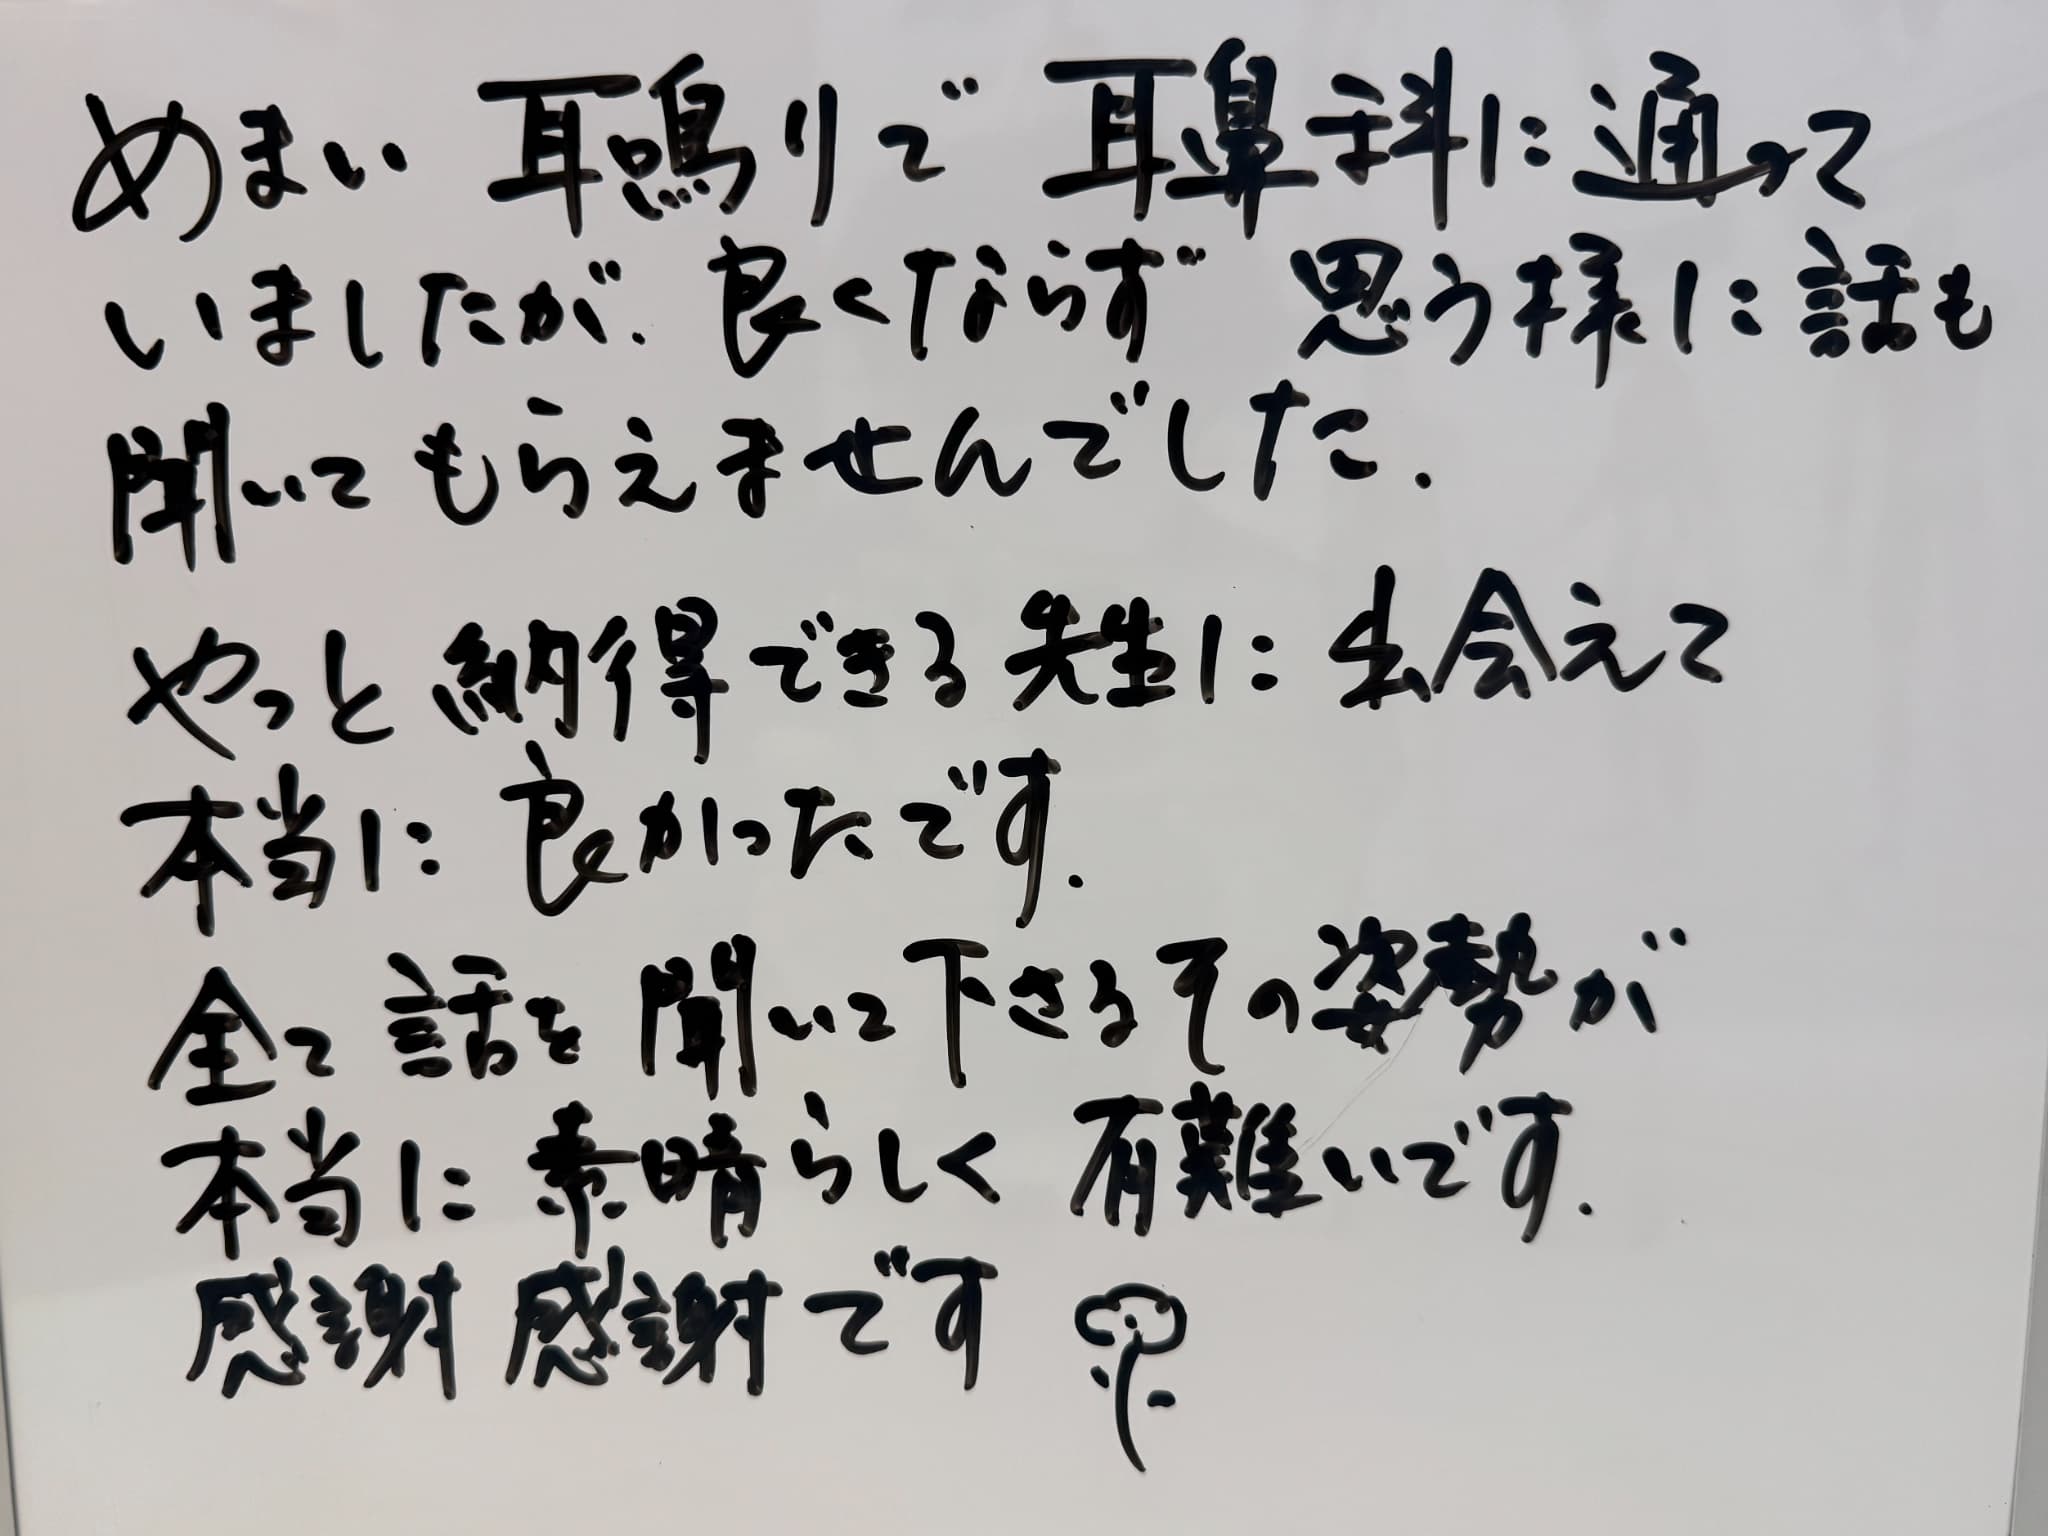 めまい 耳鳴りで 耳鼻科に通って
いましたが. 良くならず 思う様に話も
聞いてもらえませんでした.
やっと納得できる先生に出会えて
本当に良かったです.
全て話を聞いて下さるその姿勢が
本当に素晴らしく有難いです.
感謝 感謝です